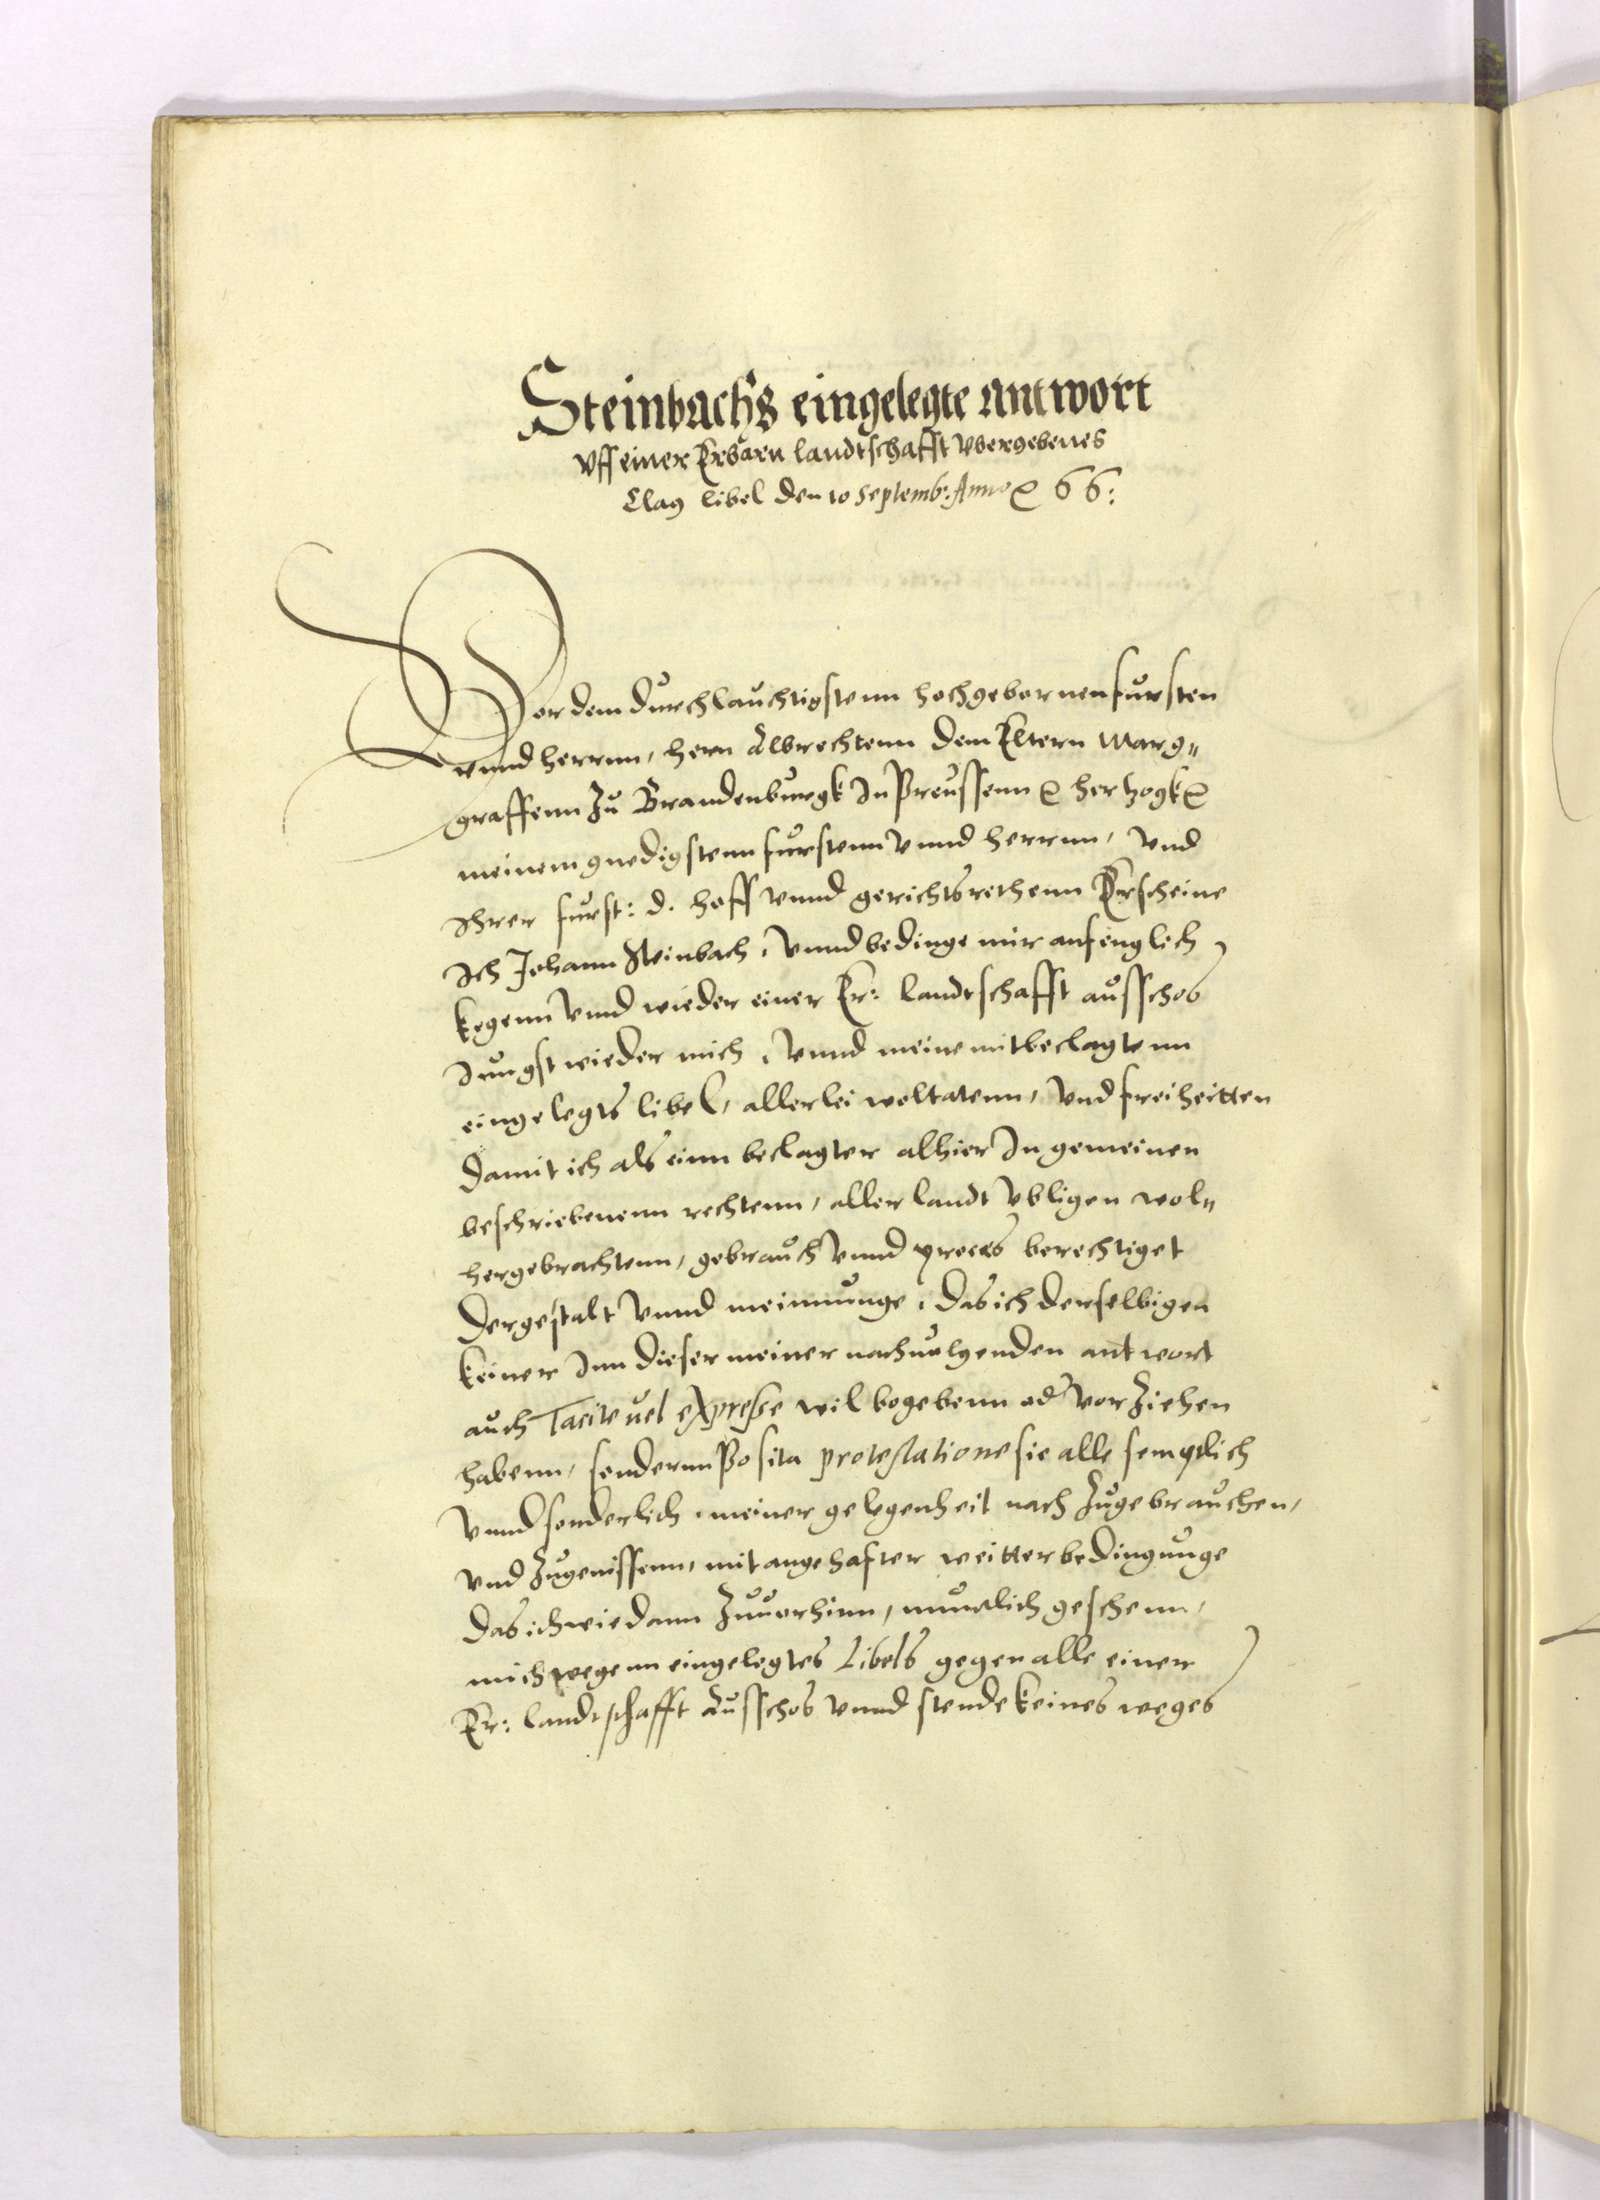 Steinbachs eingelegte antwort
vff einer Erbarn landtschafft vbergebenes
Clag libel den 10 Septemb: Anno 66:
Vor dem durchlauchtigstenn hochgebornen fursten
vnnd herrnn, hern Albrechtenn dem Eltern Marg„
graffenn zu Brandenburgk In Preussenn hertzogk
meinem gnedigstenn furstenn vnnd herrnn, vnd
Ihrer furst: d. hoff vnnd gerichtsrethenn Erscheine
Ich Johann Steinbach, vnnd bedinge mir anfenglich
kegenn vnnd wieder einer Er: landtschafft ausschos
Jungst wieder mich, vnnd meine mitbeclagtenn
eingelegts libel, allerlei woltatenn, vnd freiheitten
damit ich als einn beclagter alhier In gemeinen
beschriebenenn rechtenn, aller landt vbligen wol„
hergebrachtenn, gebrauch vnnd proces berechtiget
dergestalt vnnd meinnunge, das ich derselbigen
keiner Inn dieser meiner nachuolgenden antwort
auch Tacite uel expresse wil begebenn od vorziehen
habenn, sondernn posita protestatione sie alle semptlich
vnnd sonderlich, meiner gelegenheit nach zugebrauchen,
vnd zugenissenn, mit angehafter weitter bedingunge
das ich wie dann zuuorhinn, muntlich geschenn,
mich wegenn eingelegtes Libels gegen alle einer
Er: landtschafft Ausschos vnnd stende keines weges